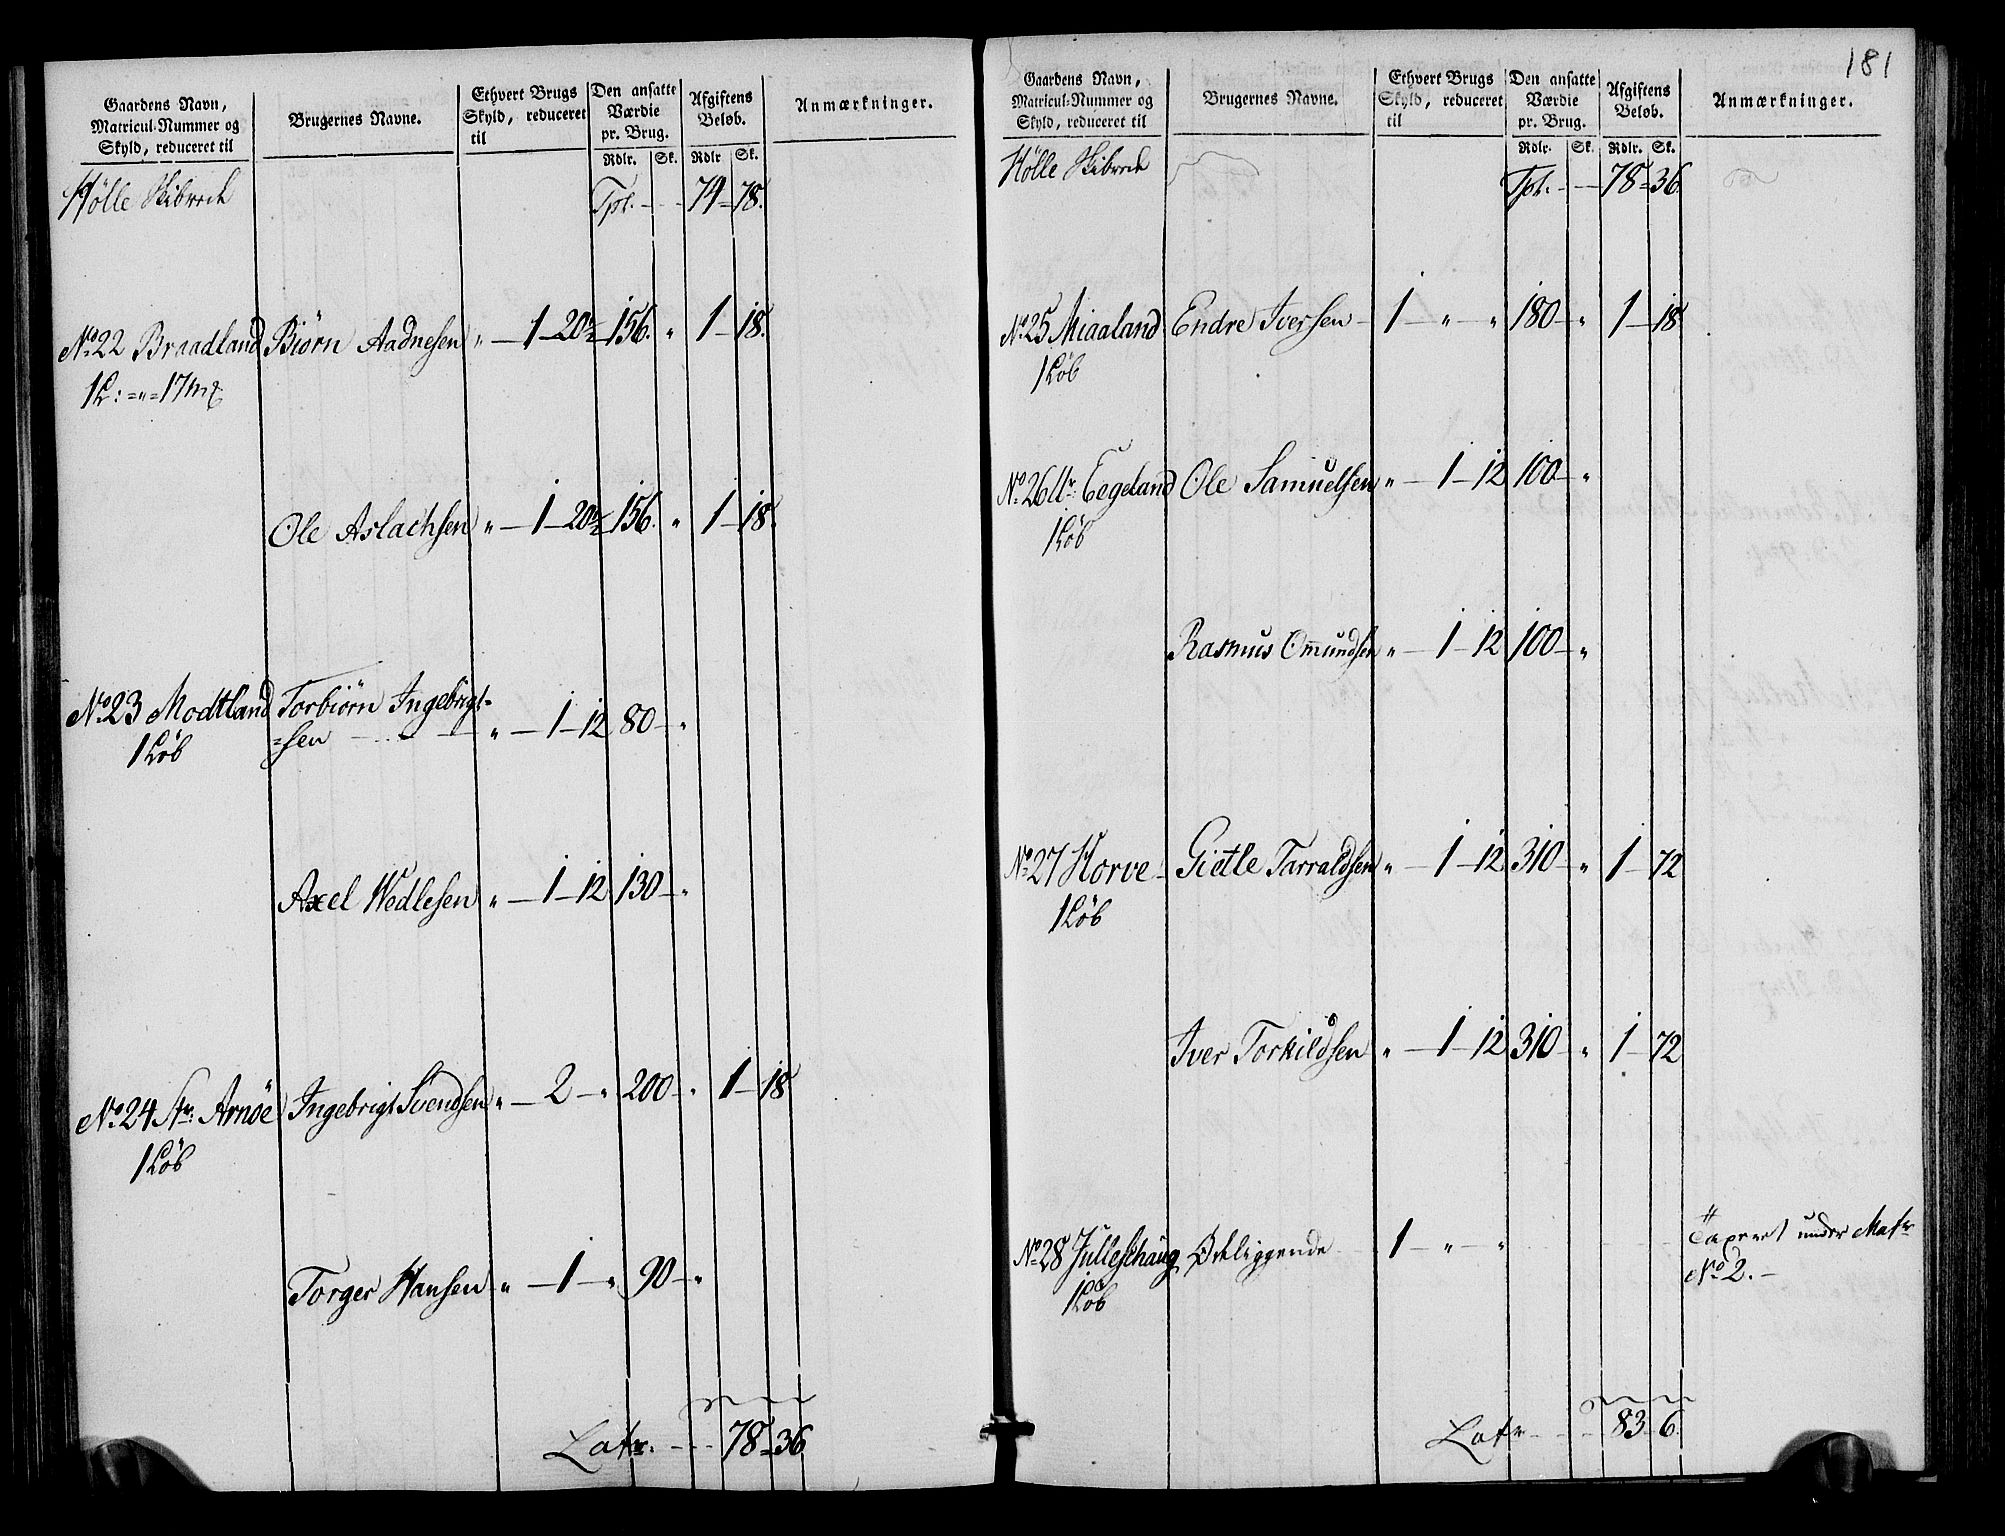 Gaardens Navn,
Matricul-Nummer og
Skyld, reduceret til
Brugernes Navne.
Ethvert Brugs
Skyld, reduceret
til
Den ansatte
Værdie
pr. Brug.
Rdlr. Sk.
Afgiftens
Beløb.
Rdlr Sk.
Anmærkninger.
Hölle Skibrede Tpt. - - 74 - 78.
No 22 Braadland Biørn Aadnesen " - 1 - 20½ 156. " 1 - 18.
1 L: = " = 17 mk
Ole Aslachsen " - 1 - 20½ 156. " 1 - 18.
No 23 Modtland Torbiörn Ingebrigt=
1 Löb =sen " - 1 - 12 80 - "
Axel Wedlesen " - 1 - 12 130 - "
No 24 Str: Arnöe Ingebrigt Svendsen " - 2 - " 200 - " 1 - 18
1 Löb
Torger Hansen " - 1 - " 90 - "
Latr. - - - 78 = 36
181
Gaardens Navn,
Matricul-Nummer og
Skyld, reduceret til
Brugernes Navne.
Ethvert Brugs
Skyld, reduceret
til
Den ansatte
Værdie
pr. Brug.
Rdlr. Sk.
Afgiftens
Beløb.
Rdlr. Sk.
Anmærkninger.
Hölle Skibrede Tpt. - - 78 = 36.
No 25 Miaaland Endre Iversen - 1 - " - " 180 - " 1 - 18
1 Löb
No 26 Ur: Eegeland Ole Samuelsen " - 1 - 12 100 - "
1 Löb
Rasmus Omundsen " - 1 - 12 100 - "
No 27 Horve - Gietle Tarraldsen " - 1 - 12 310 - " 1 - 72
1 Löb
Iver Torkildsen " - 1 - 12 310 - " 1 - 72
No 28 Julleschaug Ødeliggende 1 - " - " Taxeret under Matr
1 Löb No 2. -
Latr - - - 83 - 6